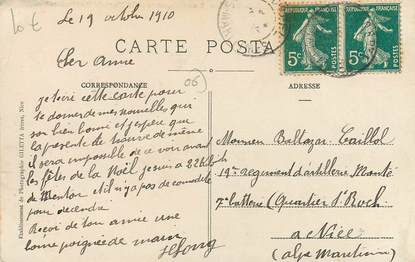 10 €
Le 19 octobre 1910
CARTE POSTALE
RÉPUBLIQUE FRANÇAISE
5c
RÉPUBLIQUE FRANÇAISE
5c
Cher Amie
CORRESPONDANCE
ADRESSE
06
je t'ecri cette carte pour
te donner de mes nouvelles qui
son bien bonne et j'espere que
la presente te trouve de même
il sera imposible de ce voir avant
les fêtes de la Noël je suis a 22 kil
de Menton et il n'y a pas de comodité
pour decendre
Recoi de ton amie une
bonne poignée de main
Monsieur Baltazar Caillol
19e regiment d'artillerie Monté
7e batterie (Quartier St Roch
a Nice
(alpe Maritime)
Etablissement de Photographie GILETTA frères, Nice